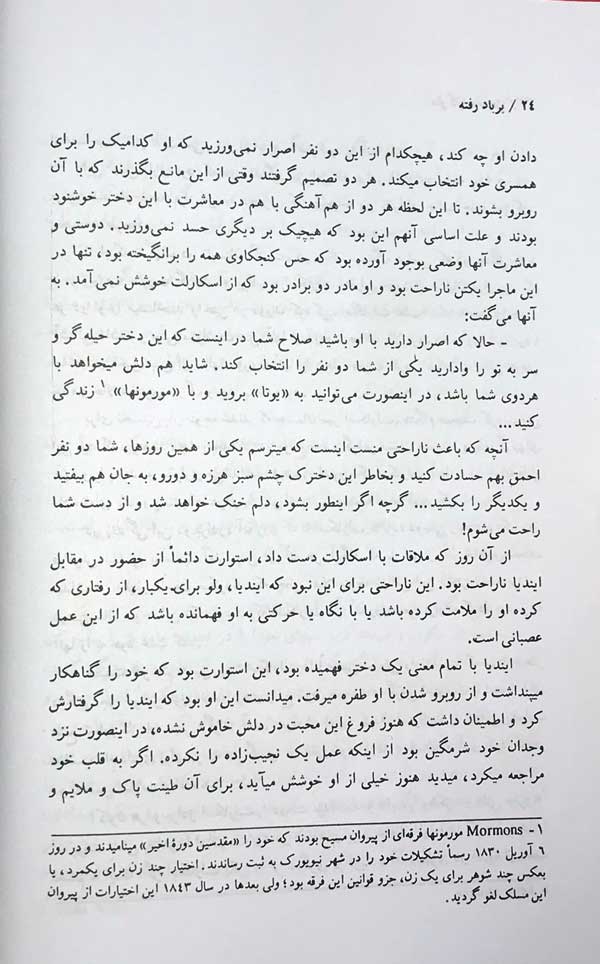 ۲٤ / بر باد رفته
دادن او چه کند، هیچکدام از این دو نفر اصرار نمی‌ورزید که او کدامیک را برای
همسری خود انتخاب میکند. هر دو تصمیم گرفتند وقتی از این مانع بگذرند که با آن
روبرو بشوند. تا این لحظه هر دو از هم‌آهنگی با هم در معاشرت با این دختر خوشنود
بودند و علت اساسی آنهم این بود که هیچیک بر دیگری حسد نمی‌ورزید. دوستی و
معاشرت آنها وضعی بوجود آورده بود که حس کنجکاوی همه را برانگیخته بود، تنها در
این ماجرا یکتن ناراحت بود و او مادر دو برادر بود که از اسکارلت خوشش نمی آمد. به
آنها می‌گفت:
- حالا که اصرار دارید با او باشید صلاح شما در اینست که این دختر حیله گر و
سر به تو را وادارید یکی از شما دو نفر را انتخاب کند. شاید هم دلش میخواهد با
هردوی شما باشد، در اینصورت می‌توانید به «یوتا» بروید و با «مورمونها» ۱ زندگی
کنید...
آنچه که باعث ناراحتی منست اینست که میترسم یکی از همین روزها، شما دو نفر
احمق بهم حسادت کنید و بخاطر این دخترک چشم سبز هرزه و دورو، به جان هم بیفتید
و یکدیگر را بکشید... گرچه اگر اینطور بشود، دلم خنک خواهد شد و از دست شما
راحت می‌شوم!
از آن روز که ملاقات با اسکارلت دست داد، استوارت دائماً از حضور در مقابل
ایندیا ناراحت بود. این ناراحتی برای این نبود که ایندیا، ولو برای‌ـ‌یکبار، از رفتاری که
کرده او را ملامت کرده باشد یا با نگاه یا حرکتی به او فهمانده باشد که از این عمل
عصبانی است.
ایندیا با تمام معنی یک دختر فهمیده بود، این استوارت بود که خود را گناهکار
میپنداشت و از روبرو شدن با او طفره میرفت. میدانست این او بود که ایندیا را گرفتارش
کرد و اطمینان داشت که هنوز فروغ این محبت در دلش خاموش نشده، در اینصورت نزد
وجدان خود شرمگین بود از اینکه عمل یک نجیب‌زاده را نکرده. اگر به قلب خود
مراجعه میکرد، میدید هنوز خیلی از او خوشش میآید، برای آن طینت پاک و ملایم و
۱ - Mormons مورمونها فرقه‌ای از پیروان مسیح بودند که خود را «مقدسین دورۀ اخیر» مینامیدند و در روز
٦ آوریل ۱۸۳۰ رسماً تشکیلات خود را در شهر نیویورک به ثبت رساندند. اختیار چند زن برای یکمرد، یا
بعکس چند شوهر برای یک زن، جزو قوانین این فرقه بود؛ ولی بعدها در سال ۱۸٤۳ این اختیارات از پیروان
این مسلک لغو گردید.